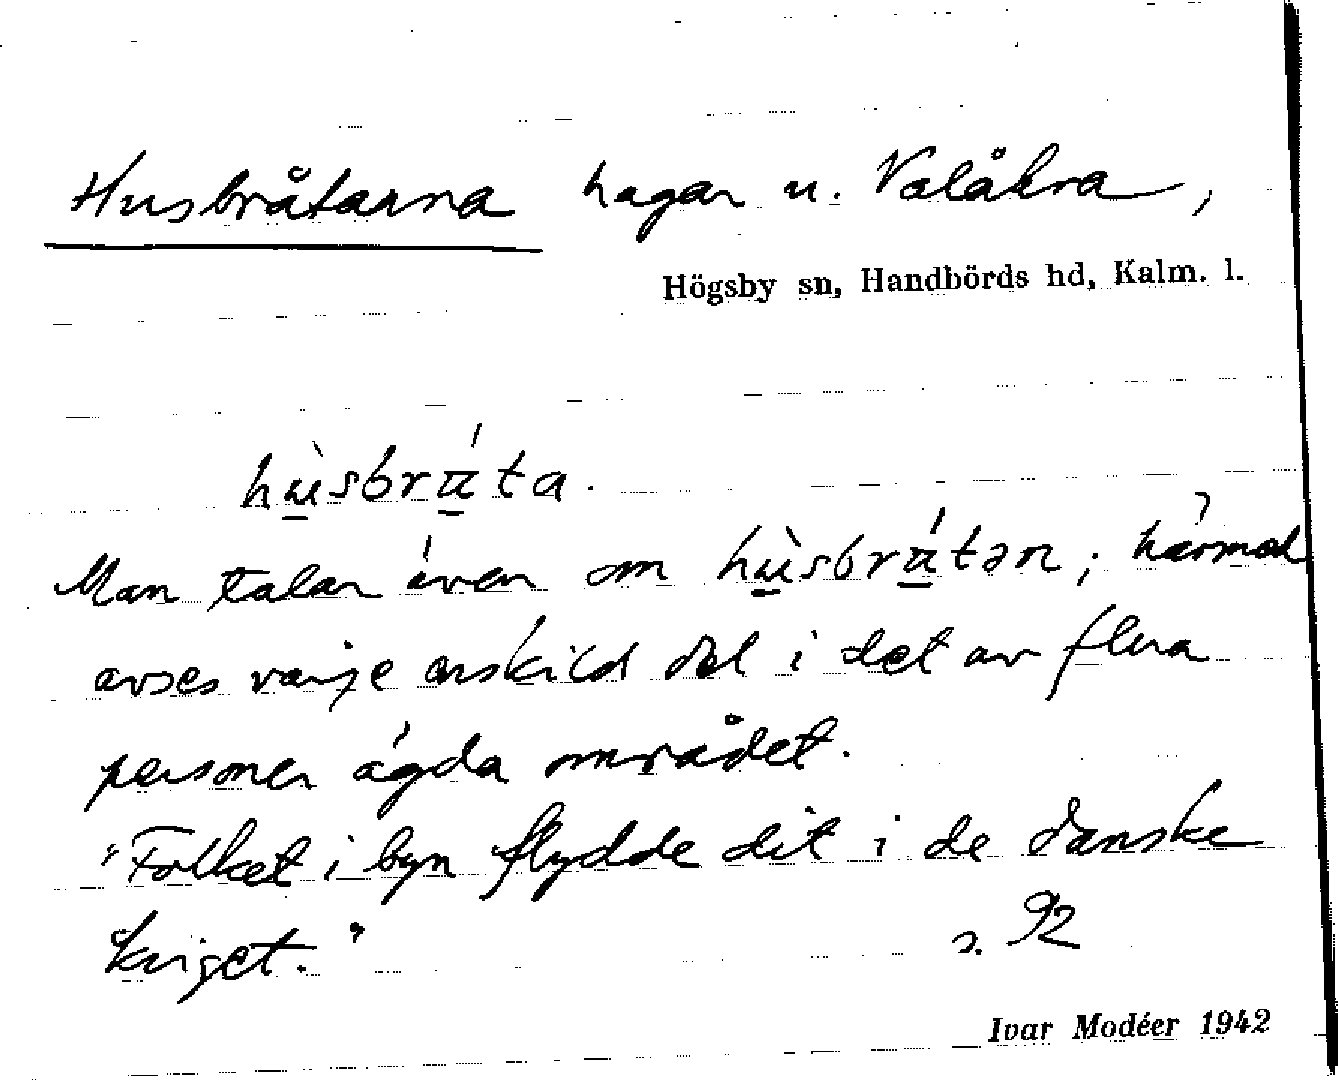 Husbråtarna hagar u. Valåkra,
Högsby sn, Handbörds hd, Kalm. l.
hùsbrúta.
Man talar även om hùsbrútən; härmed
avses varje enskild del i det av flera
personer ägda området.
"Folket i byn flydde dit i de danske
kriget." s. 92
Ivar Modéer 1942